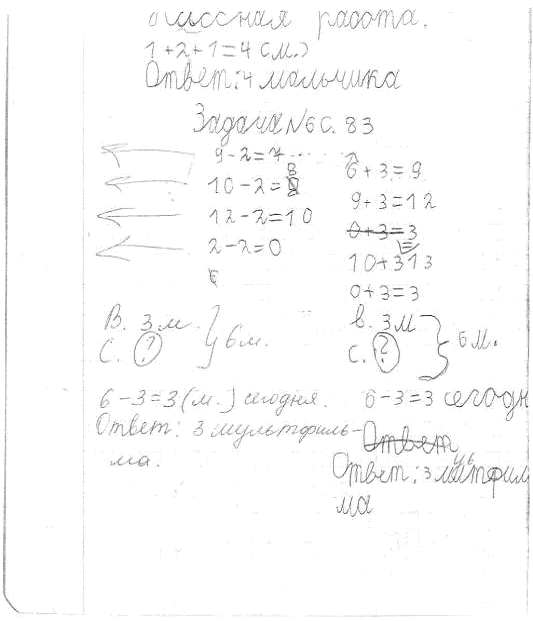 классная работа.
1+2+1=4 (м.)
Ответ: 4 мальчика
Задача №6 С. 83
9-2=7
10-2=8
12-2=10
2-2=0
6+3=9
9+3=12
0+3=3
10+3=13
0+3=3
В. 3 м.
С. ?
6 м.
6-3=3 (м.) сегодня.
Ответ: 3 мультфиль-
ма.
В. 3 м
С. ?
6 м.
6-3=3 сегодн
Ответ
Ответ: 3
ма